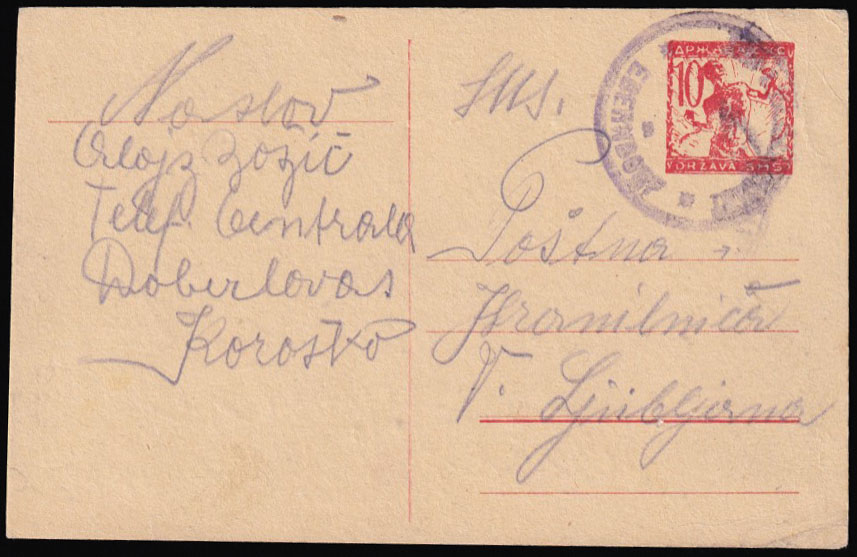 Naslov
Alojz Božič
Telef. Centrala
Doberlovas
Koroško
SHS.
Poštna
Hranilnica
V. Ljubljana
10
DRŽAVA SHS